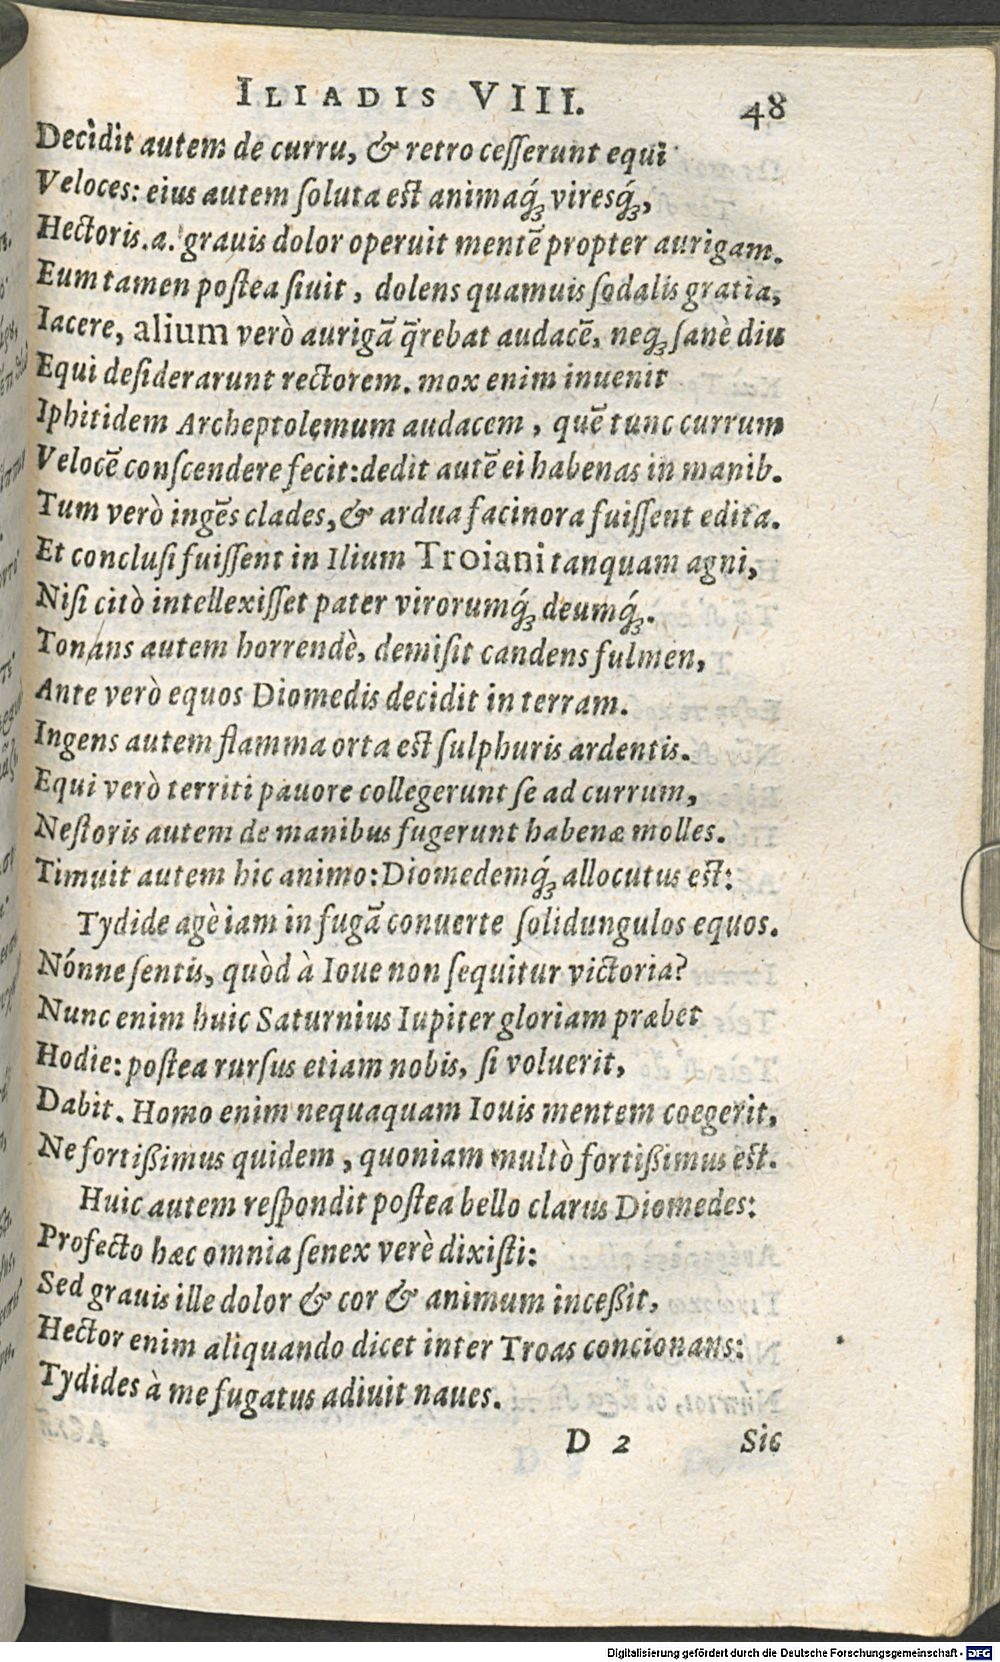 ILIADIS VIII. 48
Decidit autem de curru, & retro cesserunt equi
Veloces: eius autem soluta est animaq́ꝫ viresq́ꝫ,
Hectoris.a. grauis dolor operuit mentē propter aurigam.
Eum tamen postea siuit, dolens quamuis sodalis gratia,
Iacere, alium verò aurigā q̄rebat audacē, neqꝫ sanè diu
Equi desiderarunt rectorem. mox enim inuenit
Iphitidem Archeptolemum audacem, quē tunc currum
Velocē conscendere fecit: dedit autē ei habenas in manib.
Tum verò ingēs clades, & ardua facinora fuissent edita.
Et conclusi fuissent in Ilium Troiani tanquam agni,
Nisi citò intellexisset pater virorumq́ꝫ deumq́ꝫ.
Tonans autem horrendè, demisit candens fulmen,
Ante verò equos Diomedis decidit in terram.
Ingens autem flamma orta est sulphuris ardentis.
Equi verò territi pauore collegerunt se ad currum,
Nestoris autem de manibus fugerunt habenæ molles.
Timuit autem hic animo: Diomedemq́ꝫ allocutus est:
Tydide agè iam in fugā conuerte solidungulos equos.
Nónne sentis, quòd à Ioue non sequitur victoria?
Nunc enim huic Saturnius Iupiter gloriam præbet
Hodie: postea rursus etiam nobis, si voluerit,
Dabit. Homo enim nequaquam Iouis mentem coegerit,
Ne fortißimus quidem, quoniam multò fortißimus est.
Huic autem respondit postea bello clarus Diomedes:
Profecto hæc omnia senex verè dixisti:
Sed grauis ille dolor & cor & animum inceßit,
Hector enim aliquando dicet inter Troas concionans:
Tydides à me fugatus adiuit naues.
D 2 Sic
Digitalisierung gefördert durch die Deutsche Forschungsgemeinschaft - DFG